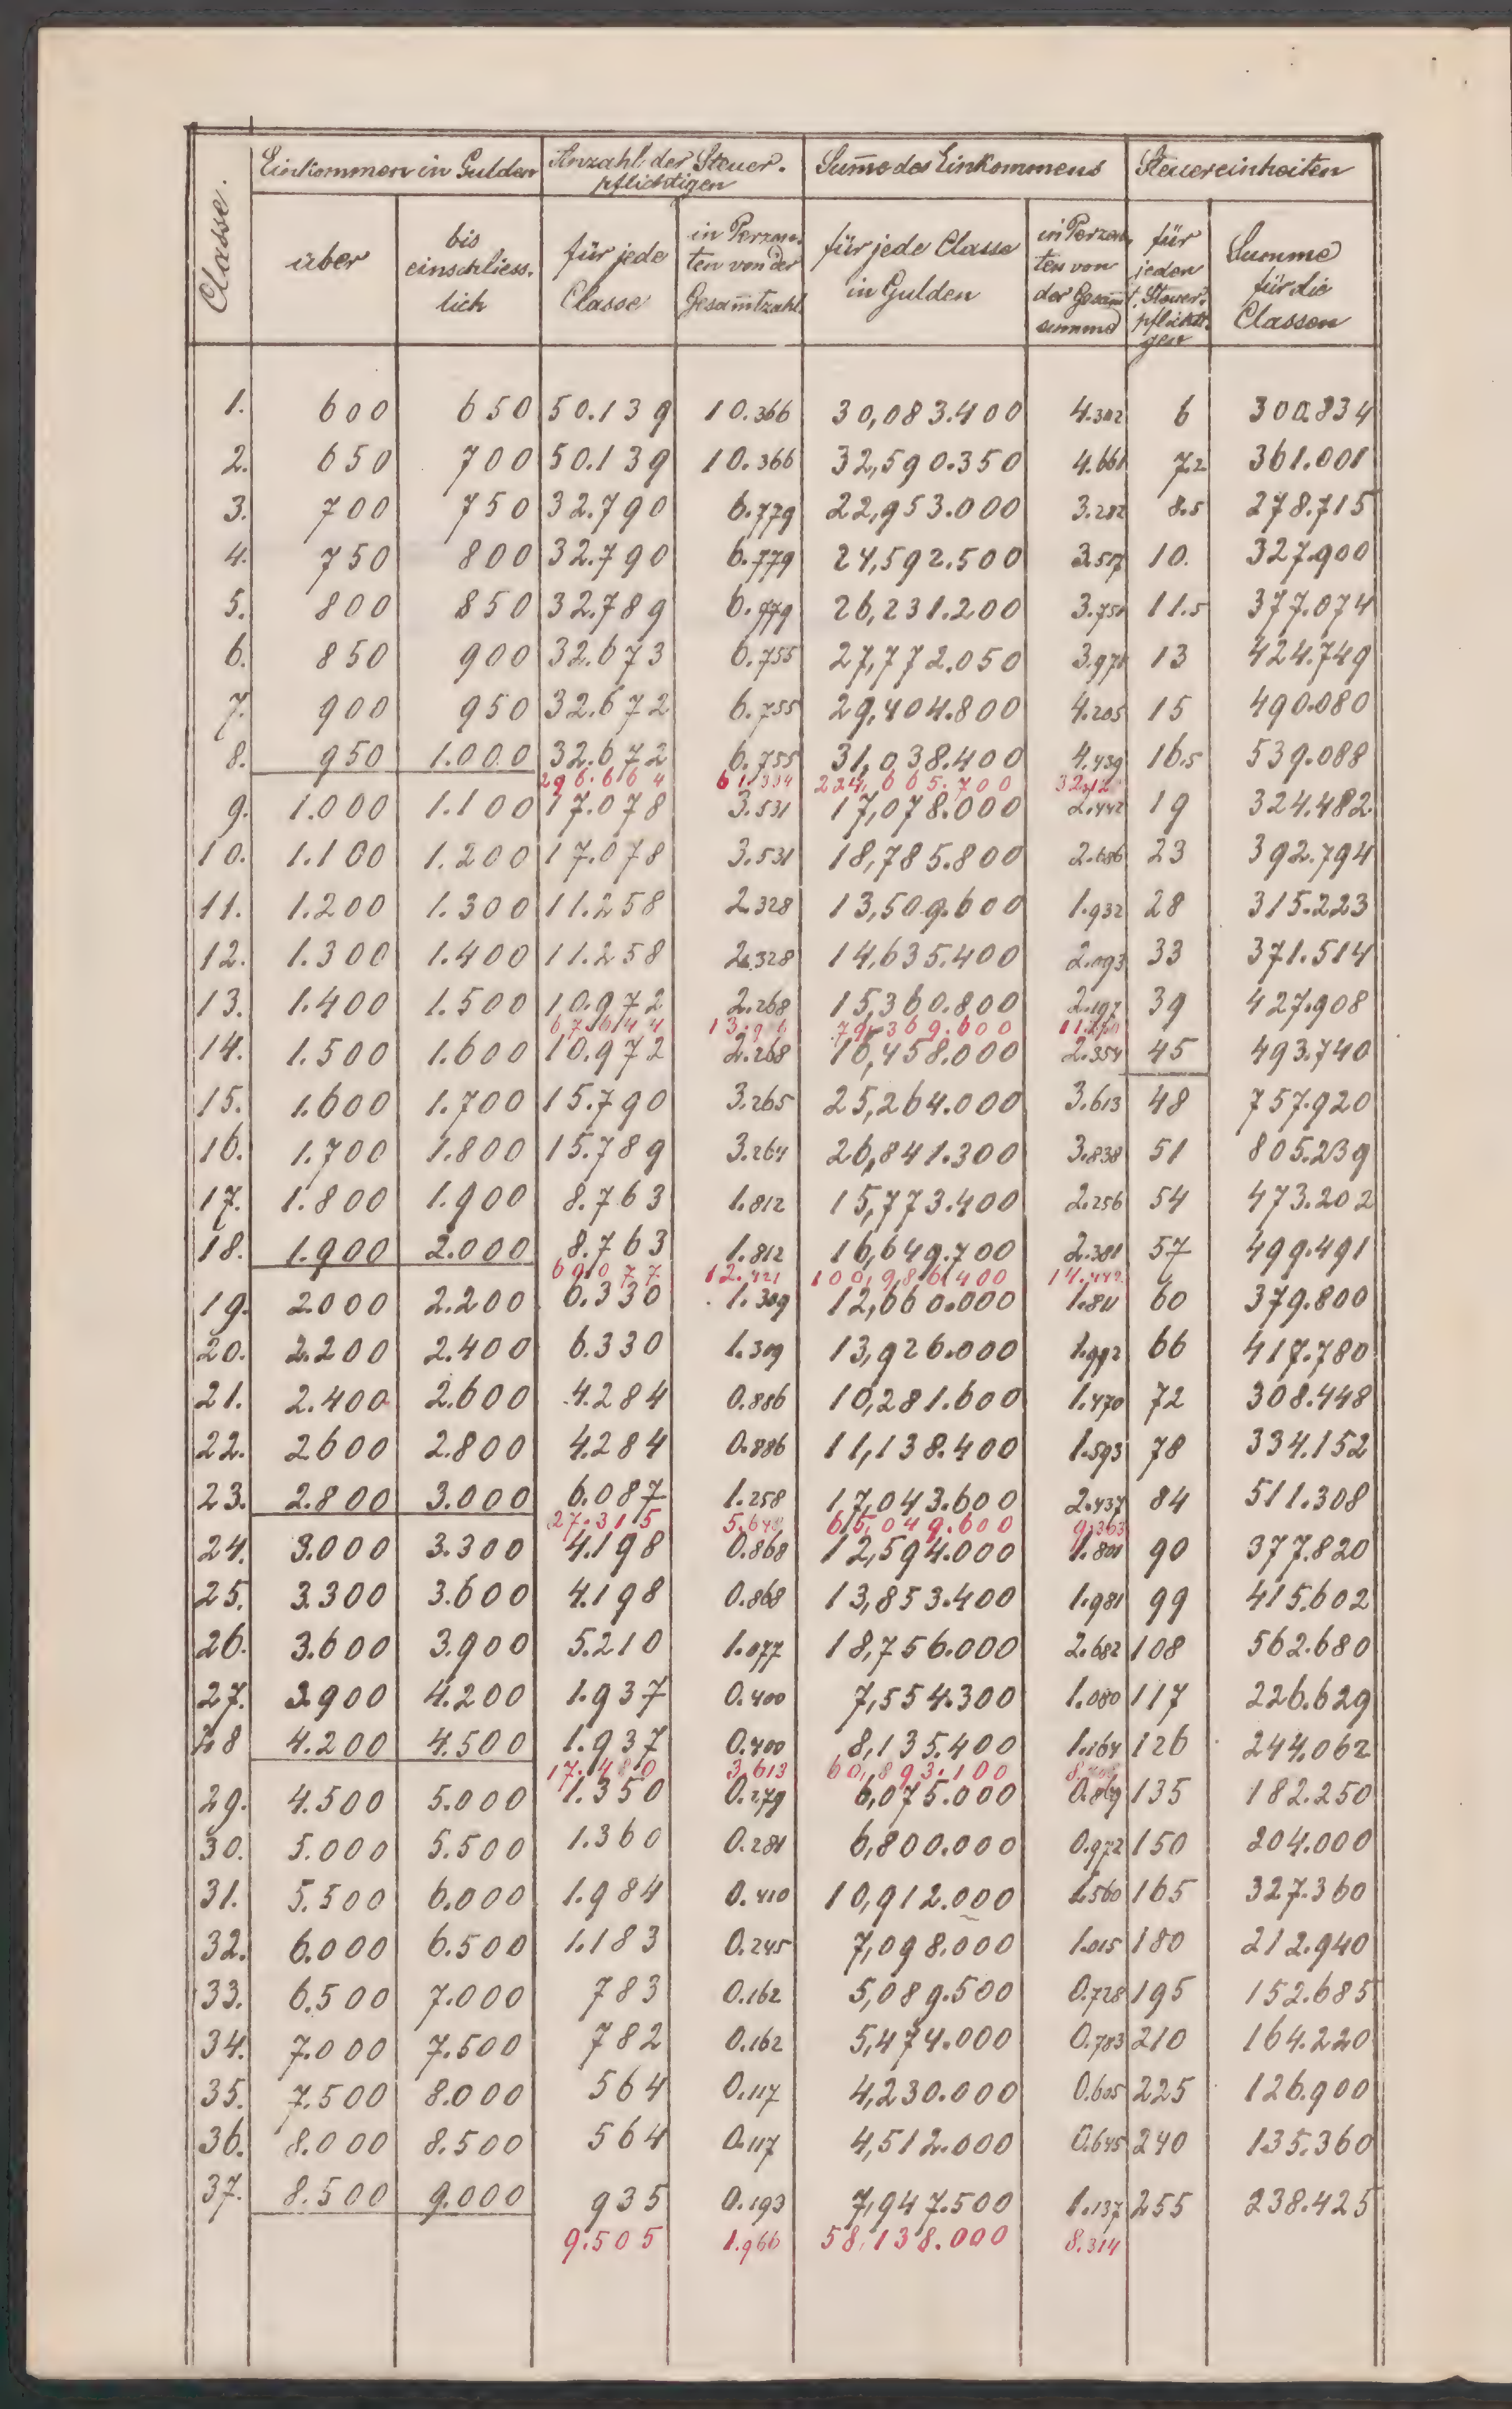 Classe.
Einkommen in Gulden
Anzahl der Steuer-
pflichtigen
Sum̄e des Einkommens
Steuereinheiten
über
bis
einschliess-
lich
für jede
Classe
in Perzen-
ten von der
Gesam̄tzahl
für jede Classe
in Gulden
in Perzen-
ten von
der Gesam̄t-
summe
für
jeden
Steuer-
pflichti-
gen
Summe
für die
Classen
1. 600 650 50.139 10.366 30,083.400 4.302 6 300.834
2. 650 700 50.139 10.366 32,590.350 4.661 7.2 361.001
3. 700 750 32.790 6.779 22,953.000 3.282 8.5 278.715
4. 750 800 32.790 6.779 24,592.500 3.517 10. 327.900
5. 800 850 32.789 6.779 26,231.200 3.751 11.5 377.074
6. 850 900 32.673 6.755 27,772.050 3.971 13 424.749
7. 900 950 32.672 6.755 29,404.800 4.205 15 490.080
8. 950 1.000 32.672 6.755 31,038.400 4.439 16.5 539.088
296.664 61.334 224,665.700 32.12
9. 1.000 1.100 17.078 3.531 17,078.000 2.442 19 324.482
10. 1.100 1.200 17.078 3.531 18,785.800 2.686 23 392.794
11. 1.200 1.300 11.258 2.328 13,509.600 1.932 28 315.223
12. 1.300 1.400 11.258 2.328 14,635.400 2.093 33 371.514
13. 1.400 1.500 10.972 2.268 15,360.800 2.197 39 427.908
67.644 79,369.600
14. 1.500 1.600 10.972 2.268 16,458.000 2.354 45 493.740
15. 1.600 1.700 15.790 3.265 25,264.000 3.613 48 757.920
16. 1.700 1.800 15.789 3.264 26,841.300 3.838 51 805.239
17. 1.800 1.900 8.763 1.812 15,773.400 2.256 54 473.202
18. 1.900 2.000 8.763 1.812 16,649.700 2.381 57 499.491
60.077 12.421 100,986.400 14.442
19. 2.000 2.200 6.330 1.309 12,660.000 1.811 60 379.800
20. 2.200 2.400 6.330 1.309 13,926.000 1.992 66 417.780
21. 2.400 2.600 4.284 0.886 10,281.600 1.470 72 308.448
22. 2600 2.800 4.284 0.886 11,138.400 1.593 78 334.152
23. 2.800 3.000 6.087 1.258 17,043.600 2.437 84 511.308
27.315 5.648 65,049.600 9.303
24. 3.000 3.300 4.198 0.868 12,594.000 1.801 90 377.820
25. 3.300 3.600 4.198 0.868 13,853.400 1.981 99 415.602
26. 3.600 3.900 5.210 1.077 18,756.000 2.682 108 562.680
27. 3900 4.200 1.937 0.400 7,554.300 1.080 117 226.629
28 4.200 4.500 1.937 0.400 8,135.400 1.164 126 244.062
17.480 3.613 60,893.100
29. 4.500 5.000 1.350 0.279 6,075.000 0.869 135 182.250
30. 5.000 5.500 1.360 0.281 6,800.000 0.972 150 204.000
31. 5.500 6.000 1.984 0.410 10,912.000 1.560 165 327.360
32. 6.000 6.500 1.183 0.245 7,098.000 1.015 180 212.940
33. 6.500 7.000 783 0.162 5,089.500 0.728 195 152.685
34. 7.000 7.500 782 0.162 5,474.000 0.783 210 164.220
35. 7.500 8.000 564 0.117 4,230.000 0.605 225 126.900
36. 8.000 8.500 564 0.117 4,512.000 0.645 240 135.360
37. 8.500 9.000 935 0.193 7,947.500 1.137 255 238.425
9.505 1.966 58,138.000 8.314